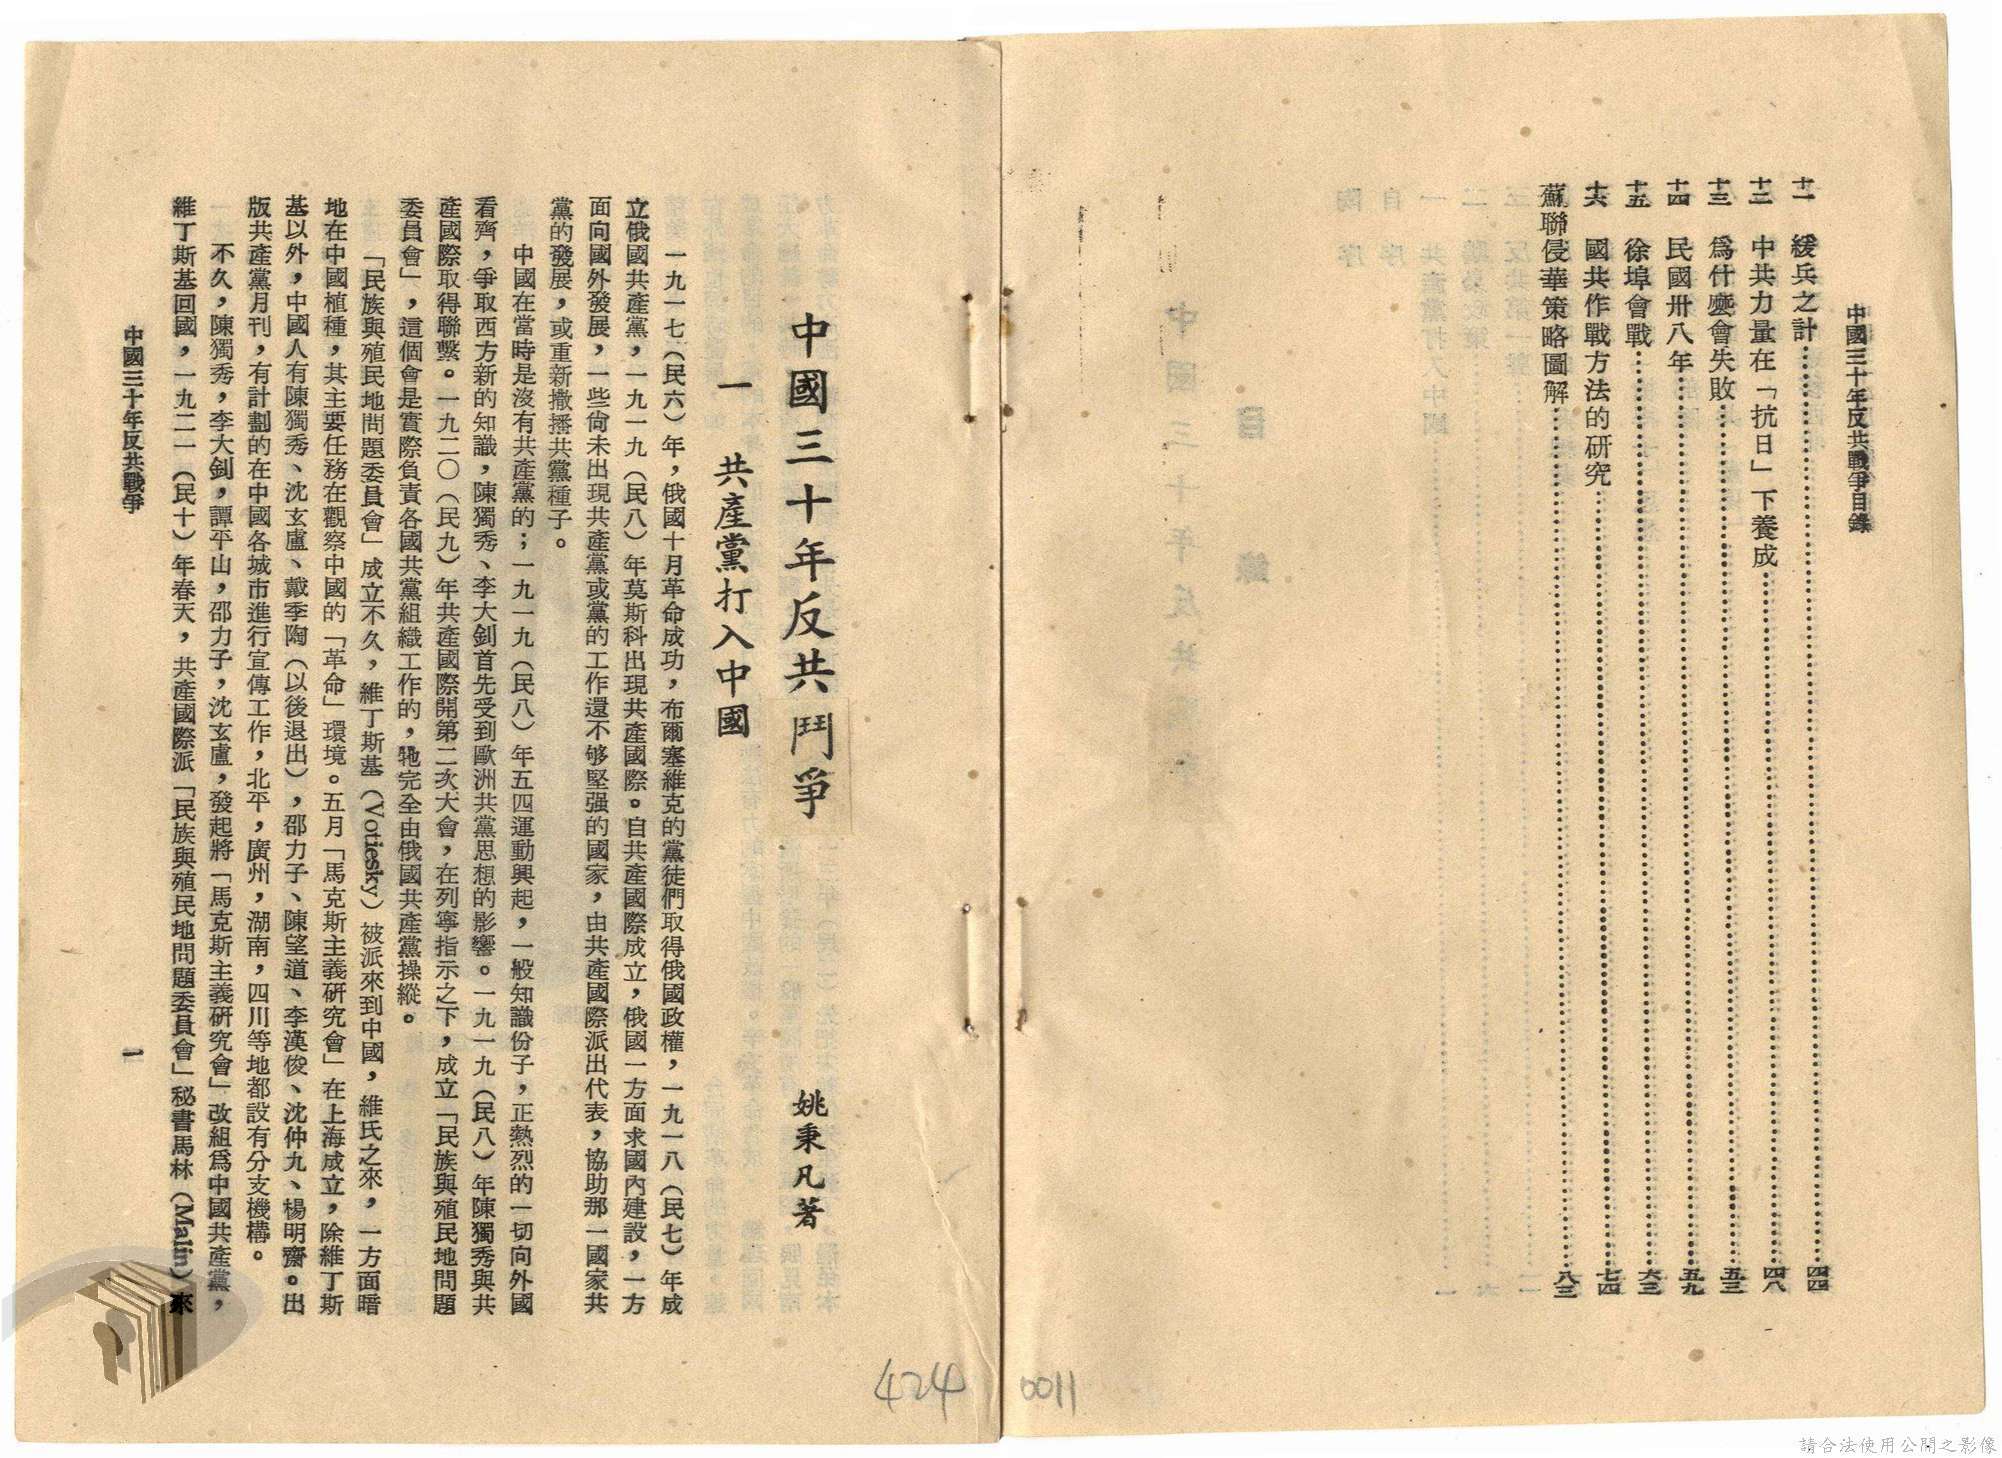 中國三十年反共戰爭目錄
十一 緩兵之計…………四四
十二 中共力量在「抗日」下養成…………四八
十三 爲什麼會失敗…………五三
十四 民國卅八年…………五九
十五 徐埠會戰…………六三
十六 國共作戰方法的研究…………七四
蘇聯侵華策略圖解…………八三
中國三十年反共鬥爭
姚秉凡著
一 共產黨打入中國
一九一七(民六)年,俄國十月革命成功,布爾塞維克的黨徒們取得俄國政權,一九一八(民七)年成
立俄國共產黨,一九一九(民八)年莫斯科出現共產國際。自共產國際成立,俄國一方面求國內建設,一方
面向國外發展,一些尙未出現共產黨或黨的工作還不够堅强的國家,由共產國際派出代表,協助那一國家共
黨的發展,或重新撒播共黨種子。
中國在當時是沒有共產黨的;一九一九(民八)年五四運動興起,一般知識份子,正熱烈的一切向外國
看齊,爭取西方新的知識,陳獨秀、李大釗首先受到歐洲共黨思想的影響。一九一九(民八)年陳獨秀與共
產國際取得聯繫。一九二〇(民九)年共產國際開第二次大會,在列寧指示之下,成立「民族與殖民地問題
委員會」,這個會是實際負責各國共黨組織工作的,牠完全由俄國共產黨操縱。
「民族與殖民地問題委員會」成立不久,維丁斯基(Votiesky)被派來到中國,維氏之來,一方面暗
地在中國植種,其主要任務在觀察中國的「革命」環境。五月「馬克斯主義研究會」在上海成立,除維丁斯
基以外,中國人有陳獨秀、沈玄盧、戴季陶(以後退出),邵力子、陳望道、李漢俊、沈仲九、楊明齋。出
版共產黨月刊,有計劃的在中國各城市進行宣傳工作,北平,廣州,湖南,四川等地都設有分支機構。
不久,陳獨秀,李大釗,譚平山,邵力子,沈玄盧,發起將「馬克斯主義研究會」改組爲中國共產黨,
維丁斯基回國,一九二一(民十)年春天,共產國際派「民族與殖民地問題委員會」秘書馬林(Malin)來
中國三十年反共戰爭
一
424
0011
請合法使用公開之影像